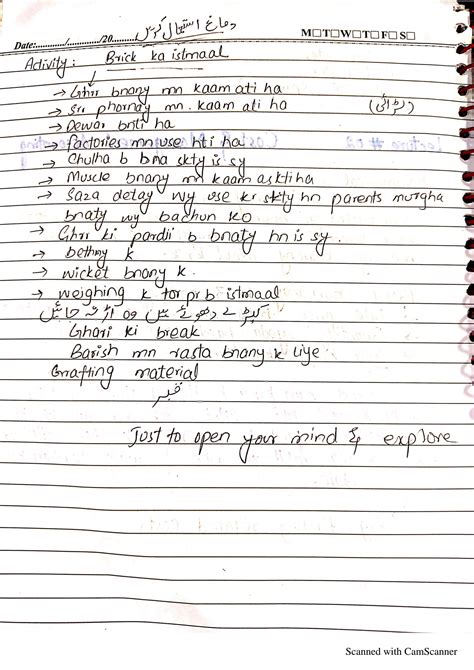 دماغ استعمال کریں
Date:............/............/20.......... M☐T☐W☐T☐F☐S☐
Activity: Brick ka istmaal
→ Ghrr bnany mn kaam ati ha
→ Srr phornay mn. kaam ati ha (لڑائی)
→ Dewar bnti ha
→ factories mn use hti ha
→ Chulha b bna skty is sy
→ Muscle bnany mn kaam asktiha
→ Saza detay wy use kr skty hn parents murgha
bnaty wy bachun ko
→ Ghrr ki pardii b bnaty hn is sy.
→ bethny k
→ wicket bnany k.
→ weighing k tor pr b istmaal
کپڑے دھوتے ہیں وہ اڑ نہ جائیں
Ghari ki break
Barish mn rasta bnany k liye
Grafting material
قبر
Just to open your mind & explore
Scanned with CamScanner